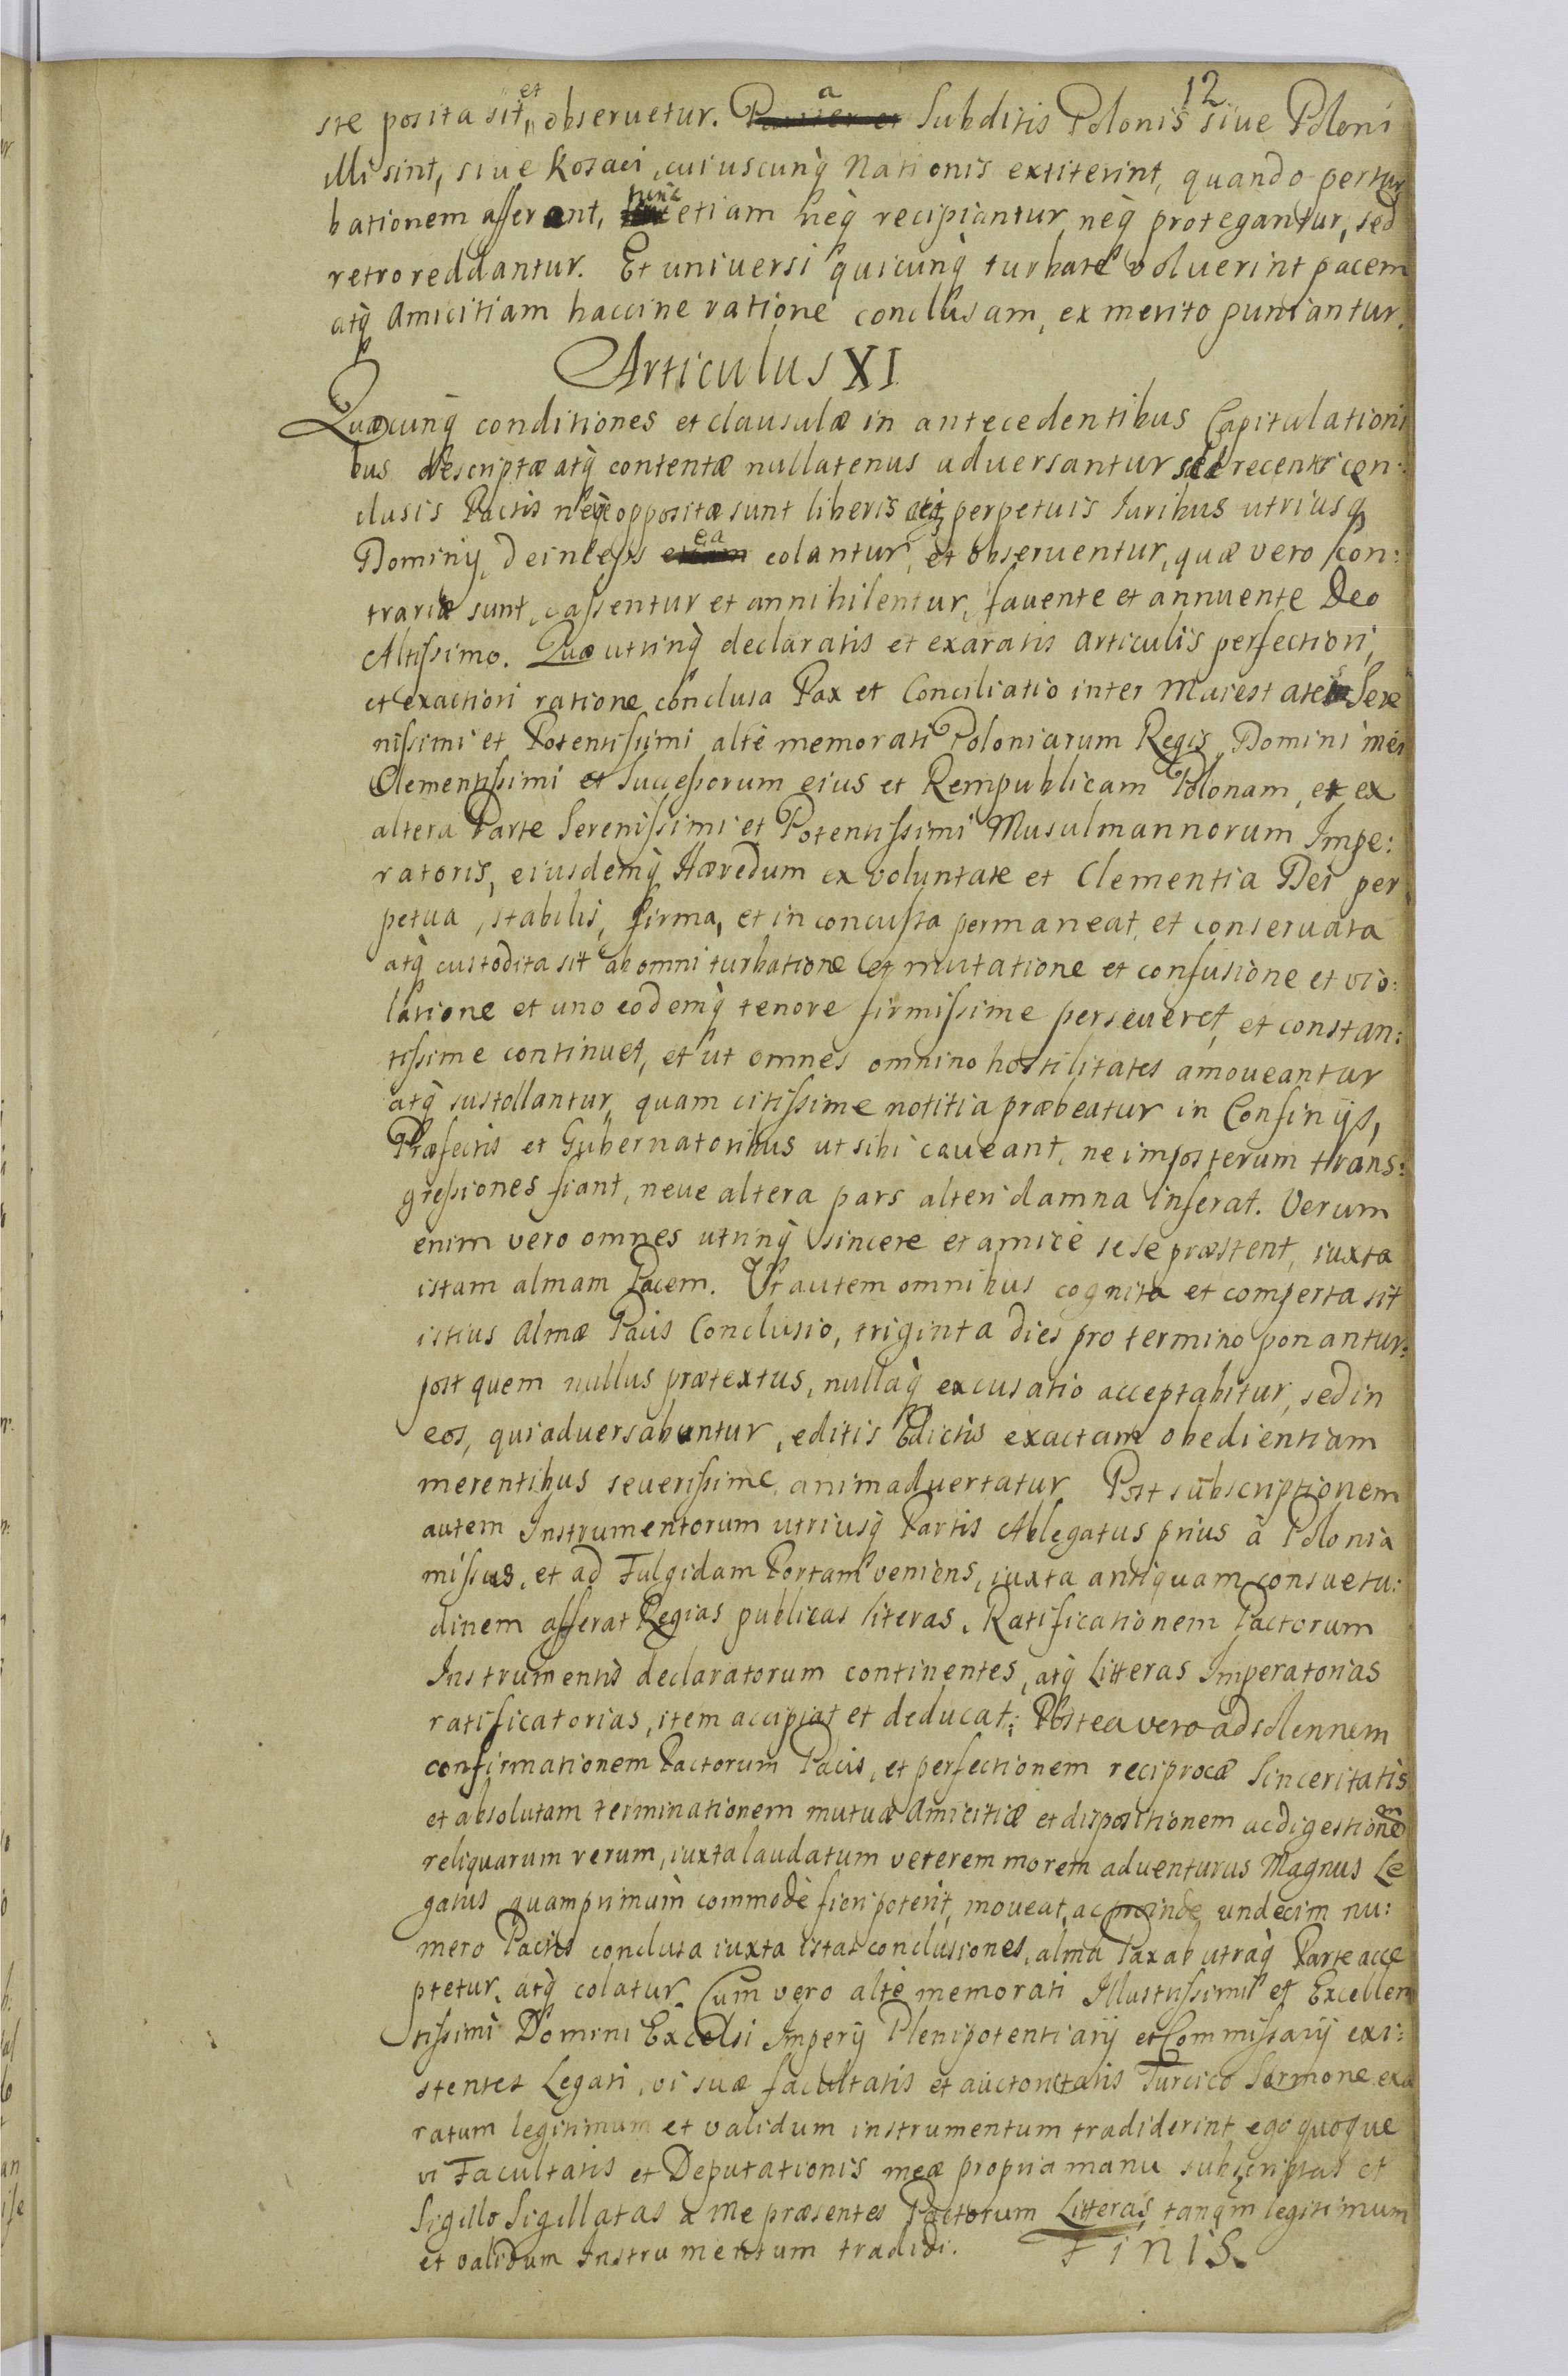 12
ste posita sit, et obseruetur. Pariter et a Subditis Polonis siue Poloni
illi sint, siue Kosaci, cuiuscunq̀ Nationis extiterint, quando pertur
bationem afferent, hinc etiam neq̀ recipiantur, neq̀ protegantur, sed
retro reddantur. Et uniuersi quicunq̀ turbare voluerint pacem
atq̀ Amicitiam haccine ratione conclusam, ex merito puniantur.
Articulus XI
Quæcunq̀ conditiones et clausulæ in antecedentibus Capitulationi
bus descriptæ atq̀ contentæ nullatenus aduersantur sed recenter con:
clusis Pactis neq̀ oppositæ sunt liberis atq̀ perpetuis Iuribus utriusq̀
Dominij, deinceps etiam ea colantur, et obseruentur, quæ vero con:
trariæ sunt, cassentur et annihilentur, fauente et annuente Deo
Altissimo. Quæ utrinq̀ declaratis et exaratis articulis perfectiori,
et exactiori ratione conclusa Pax et Conciliatio inter Maiestates Sere
nissimi et Potentissimi altè memorati Poloniarum Regis Domini mei
Clementissimi et Successorum eius et Rempublicam Polonam, et ex
altera Parte Serenissimi et Potentissimi Musulmannorum Impe:
ratoris, eiusdemq̀ Hæredum ex voluntate et Clementia Dei per
petua, stabilis, firma, et inconcussa permaneat, et conseruata
atq̀ custodita sit ab omni turbatione et mutatione et confusione et vio:
latione et uno eodemq̀ tenore firmissime perseueret, et constan:
tissime continuet, et ut omnes omnino hostilitates amoueantur
atq̀ sustollantur, quam citissime notitia præbeatur in Confinijs,
Præfectis et Gubernatoribus ut sibi caueant, ne imposterum trans:
gressiones fiant, neue altera pars alteri damna inferat. Verum
enim vero omnes utrinq̀ sincere et amicè sese præstent, iuxta
istam almam Pacem. Ut autem omnibus cognita et comperta sit
istius Almæ Pacis Conclusio, triginta dies pro termino ponantur:
post quem nullus prætextus, nullaq̀ excusatio acceptabitur, sed in
eos, qui aduersabuntur, editis Edictis exactam obedientiam
merentibus seuerissime animaduertatur. Post subscriptionem
autem Instrumentorum utriusq̀ Partis Ablegatus prius à Polonia
missus, et ad Fulgidam Portam veniens, iuxta antiquam consuetu:
dinem afferat Regias publicas literas, Ratificationem Pactorum
Instrumentis declaratorum continentes, atq̀ Litteras Imperatorias
ratificatorias, item accipiat et deducat; Postea vero ad solennem
confirmationem Pactorum Pacis, et perfectionem reciprocæ Sinceritatis
et absolutam terminationem mutuæ Amicitiæ et dispositionem ac digestionem
reliquarum rerum, iuxta laudatum veterem morem aduenturus Magnus Le
gatus quamprimum commodè fieri poterit, moueat, ac proinde undecim nu:
mero Pactis conclusa iuxta istas conclusiones, alma Pax ab utraq̀ Parte acce
ptetur, atq̀ colatur. Cum vero altè memorati Illustrissimi et Excellen
tissimi Domini Excelsi Imperij Plenipotentiarij et Commissarij exi:
stentes Legati, vi suæ facultatis et auctoritatis Turcico Sermone exa
ratum legitimum et validum instrumentum tradiderint, ego quoque
vi Facultatis et Deputationis meæ propria manu subscriptas et
Sigillo Sigillatas à me præsentes Pactorum Litteras tanqm legitimum
et validum Instrumentum tradidi. Finis.